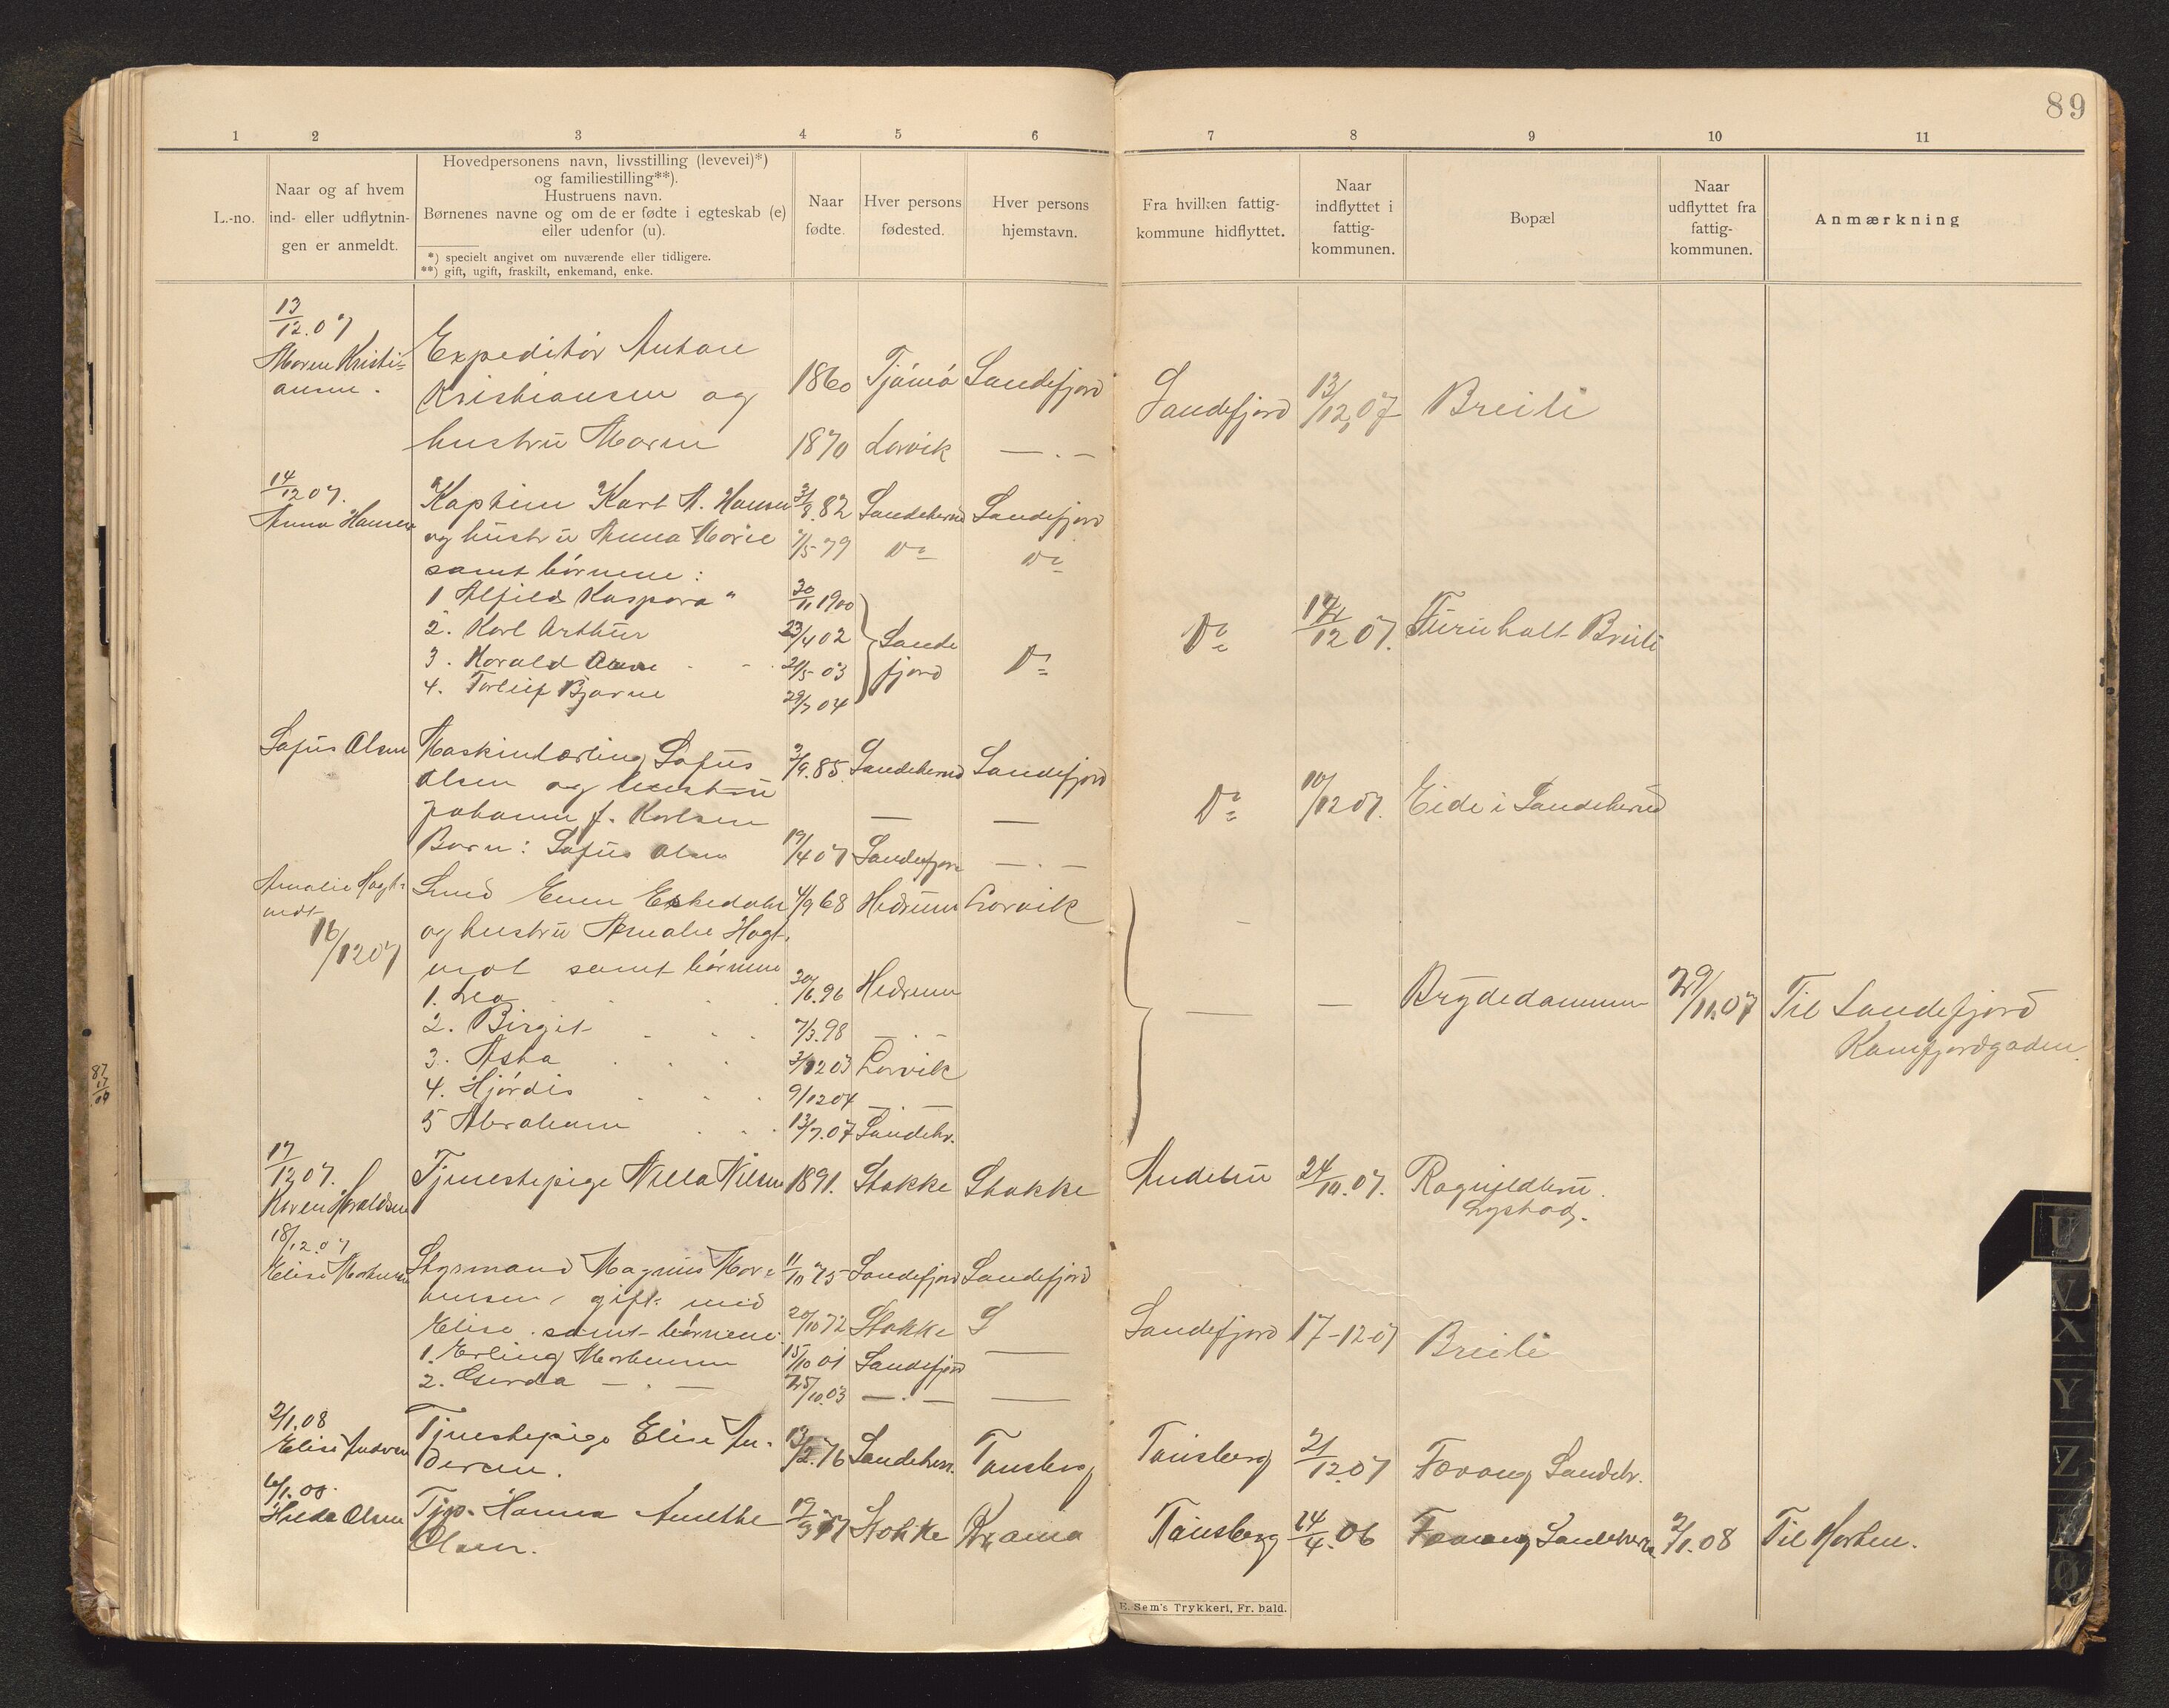 89
1 2 3 4 5 6 7 8 9 10 11
L.-no.
Naar og af hvem
ind- eller udflytnin-
gen er anmeldt.
Hovedpersonens navn, livsstilling (levevei)*)
og familiestilling**).
Hustruens navn.
Børnenes navne og om de er fødte i egteskab (e)
eller udenfor (u).
*) specielt angivet om nuværende eller tidligere.
**) gift, ugift, fraskilt, enkemand, enke.
Naar
fødte.
Hver persons
fødested.
Hver persons
hjemstavn.
Fra hvilken fattig-
kommune hidflyttet.
Naar
indflyttet i
fattig-
kommunen.
Bopæl
Naar
udflyttet fra
fattig-
kommunen.
Anmærkning
13/12.07
Maren Kristi=
ansen.
Expeditør Anton
Kristiansen og 1860 Tjømø Sandefjord Sandefjord 13/12,07 Breili
hustru Maren 1870 Larvik — . —
14/12 07.
Anna Hansen
Kaptein Karl A. Hansen 82 Sandeherred Sandefjord
og hustru Anna Marie /5 79 Do Do
samt børnene:
1 Alfild Kaspara " 30/11 1900
2. Karl Arthur 23/4 02 Sande Do 14/12 07. Furuholt Breili
3. Harald 21/5 03 fjord Do
4. Torleif Bjarne 29/7 04
Sofus Olsen Maskinlærling Sofus 2/9.85. Sandeherred Sandefjord
Olsen og hustru Do 10/12 07. Eide i Sandeherred
Johanne f. Karlsen — —
Barn: Sofus Olsen 19/4 07 Sandefjord — . —
Amalie Hagt=
vedt
16/12 07
Smed Even Eskedalen 4/9 68 Hedrum Larvik —
og hustru Amalie Hagt.
vedt samt børnene
1. Lea 30/6.96 Hedrum — — Brydedammen 29/11.07 Til Sandefjord
2. Birgit 7/3.98 — . — Kamfjordgaden.
3. Asta 3/12 03 Larvik
4. Hjørdis 9/12 04 — . —
5 Abraham 13/7.07 Sandehr.
17/12 07.
Karen Haraldsen
Tjenestepige Nilla Nilsen 1891. Stokke Stokke Andebu 24/10.07. Ragnildbru.
Lystad.
18/12.07
Elise Mathisen
Styrmand Magnus 11/10 75 Sandefjord Sandefjord
gift med
Elise. samt børnene: 20/10 72 Stokke S Sandefjord 17-12-07 Breili
1. Erling 15/10 01 Sandefjord —
2. Gerda — . — 25/10.03 — . — —
2/1.08
Elise Andersen
Tjenestepige Elise An-
dersen. 13/12.76 Sandeherr. Tønsberg Tønsberg 21/12.07 Fovang Sandehr.
6/1.08.
Hilda Olsen
Tjp. Hanna Amethe 19/9 77 Stokke Kr.ania Tønsberg 24/4.06 Fovang Sandeherred 2/1.08 Til Horten.
Olsen.
E. Sem's Trykkeri, Fr. hald.
87
17
09
U
V
X
Y
Z
Æ
Ø